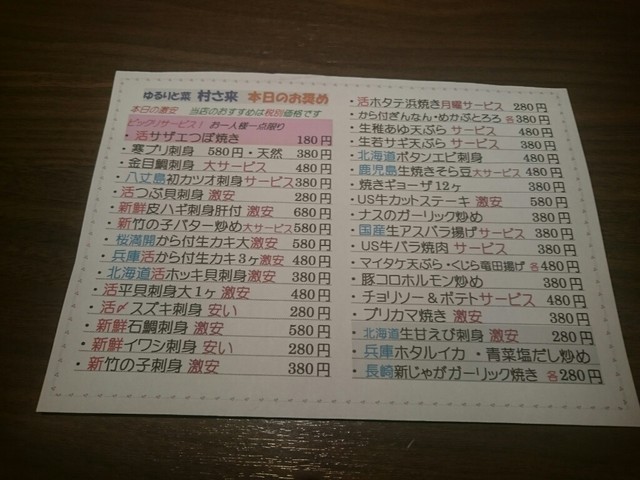 ゆるりと菜 村さ来 本日のお奨め
本日の激安 当店のおすすめは税別価格です
ビックリサービス! お一人様一点限り
・活サザエつぼ焼き 180円
・寒ブリ刺身 580円・天然 380円
・金目鯛刺身 大サービス 480円
・八丈島初カツオ刺身サービス380円
・活つぶ貝刺身 激安 280円
・新鮮皮ハギ刺身肝付 激安 680円
・新竹の子バター炒め大サービス580円
・桜満開から付生カキ大激安 580円
・兵庫活から付生カキ3ヶ激安 480円
・北海道活ホッキ貝刺身激安 380円
・活平貝刺身大1ヶ激安 480円
・活〆スズキ刺身 安い 280円
・新鮮石鯛刺身 激安 580円
・新鮮イワシ刺身 安い 280円
・新竹の子刺身 激安 380円
・活ホタテ浜焼き月曜サービス 280円
・から付ぎんなん・めかぶとろろ 各380円
・生稚あゆ天ぷら サービス 480円
・生若サギ天ぷら サービス 380円
・北海道ボタンエビ刺身 480円
・鹿児島生焼きそら豆大サービス 480円
・焼きギョーザ12ヶ 380円
・US牛カットステーキ 激安 580円
・ナスのガーリック炒め 380円
・国産生アスパラ揚げサービス 380円
・US牛バラ焼肉 サービス 380円
・マイタケ天ぷら・くじら竜田揚げ 各480円
・豚コロコロホルモン炒め 380円
・チョリソー&ポテトサービス 480円
・ブリカマ焼き 激安 380円
・北海道生甘えび刺身 激安 280円
・兵庫ホタルイカ ・青菜塩だし炒め
・長崎新じゃがガーリック焼き 各280円